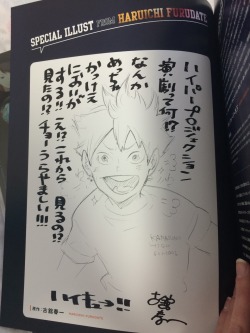 SPECIAL ILLUST FROM HARUICHI FURUDATE
ハイパープロジェクション
演劇って何!?
なんか
めっちゃ
かっけえ
においが
する!! え!? これから 見るの!?
見たの!? チョーうらやましい!!!
ハイキュー!!
原作：古舘春一